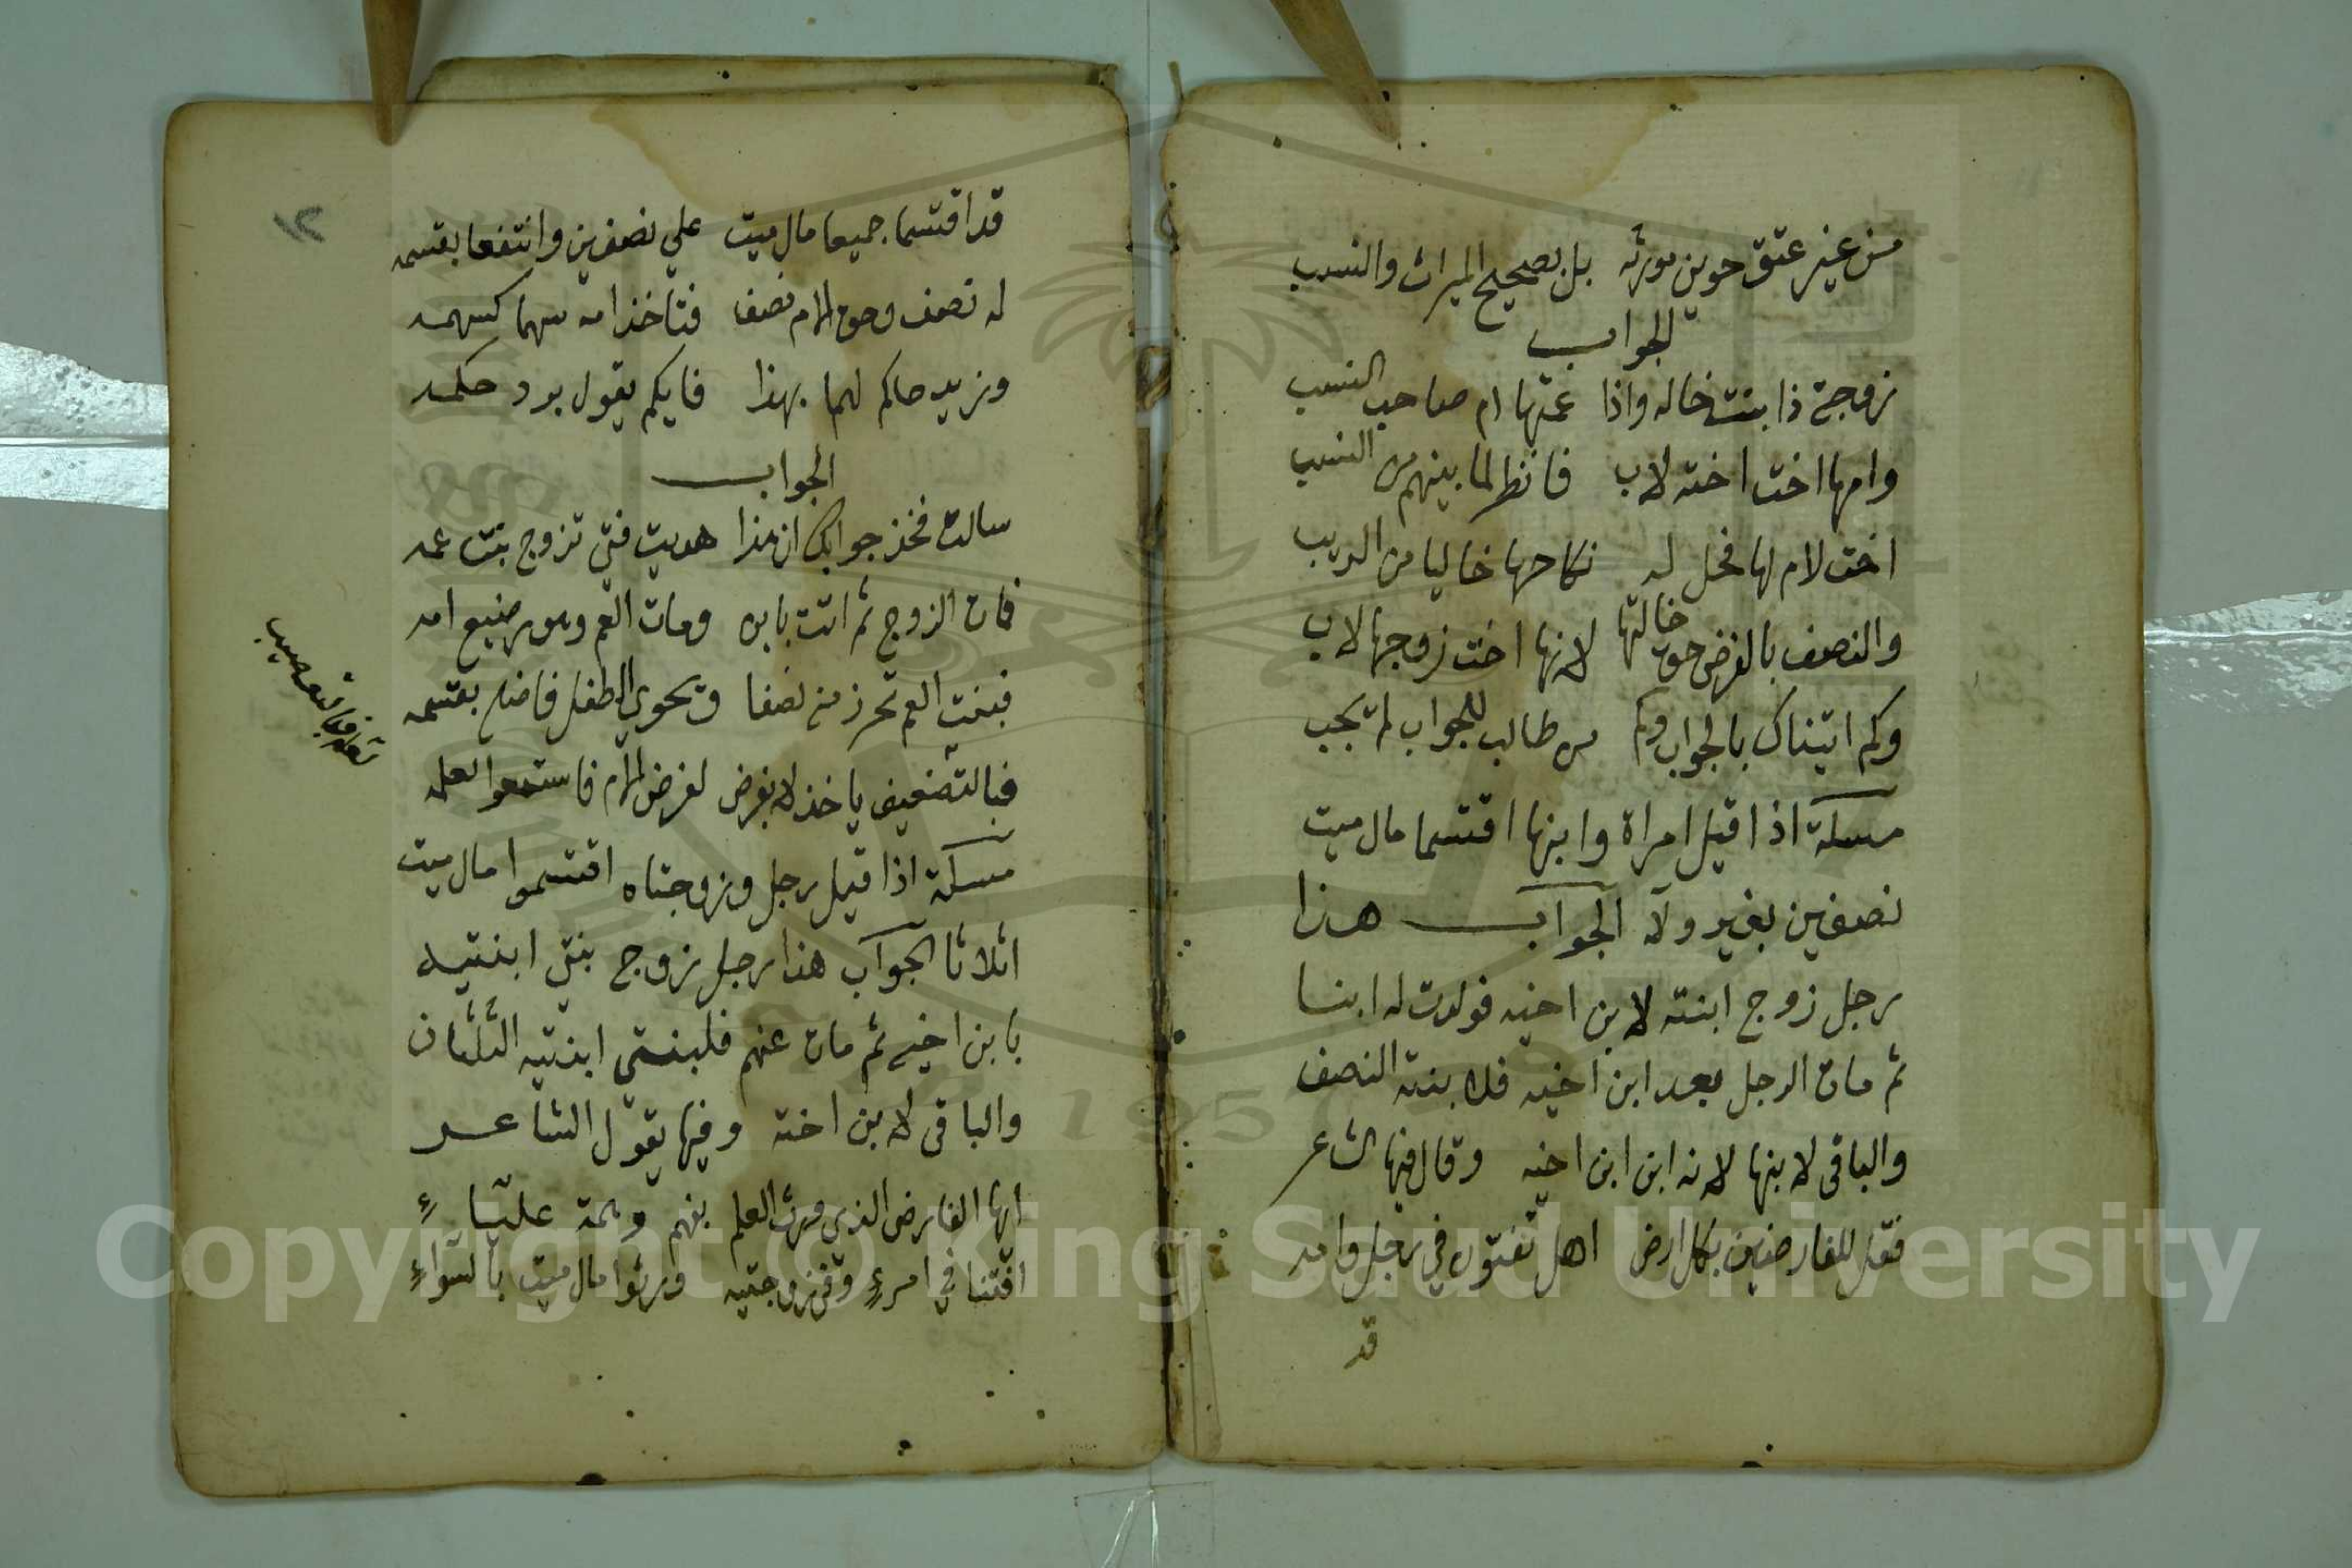 من غير عتق حوين مورثه بل بصحيح الميراث والنسب
الجواب
زوجة ذا بنت خاله واذا عمتها ام صاحب النسب
وامها اخت اخته لاب فانظر لما بينهم من النسب
اخت لام لها فحل له نكاحها خاليا من الريب
والنصف بالفرض حوت خالتها لانها اخت زوجها لاب
وكم اتيناك بالجواب وكم من طالب للجواب لم يجب
مسلة اذا قيل امراة وابنها اقتسما مال ميت
نصفين بغير ولاء الجواب هذا
رجل زوج ابنته لابن اخيه فولدت له ابنا
ثم مات الرجل بعد ابن اخيه فلابنته النصف
والباقى لابنها لانه ابن ابن اخيه وقال فيها الشاعر
فقل للفارضين بكل ارض اهل تفتون في رجل وامه
قد
١٢
قد اقتسما جميعا مال ميت علي نصفين وانتفعا بقسمه
له نصف وحق الام نصف فتاخذ امه سهما كسهمه
وزيد حاكم لهما بهذا فايكم يقول برد حكمه
الجواب
سالت فخذ جوابك ان هذا هديت فتى تزوج بنت عمه
فمات الزوج ثم اتت بابن ومات العم وهو رضيع امه
فبنت العم تحرز منه نصفا ويحوي الطفل فاضله بقسمه
فبالتضعيف ياخذ لا بفرض لفرض الام فاستمعوا لعلمه
مسلة اذا قيل رجل وزوجتاه اقتسموا مال ميت
اثلاثا الجواب هذا رجل زوج بنتي ابنتيه
بابن اخيه ثم مات عنهم فلبنتي ابنتيه الثلثان
والباقى لابن اخته وفيها يقول الشاعر
ايها الفارض الذي ورث العلم بفهم وهمة علياء
افتنا في امرء وفي زوجتيه ورثوا مال ميت بالسواء